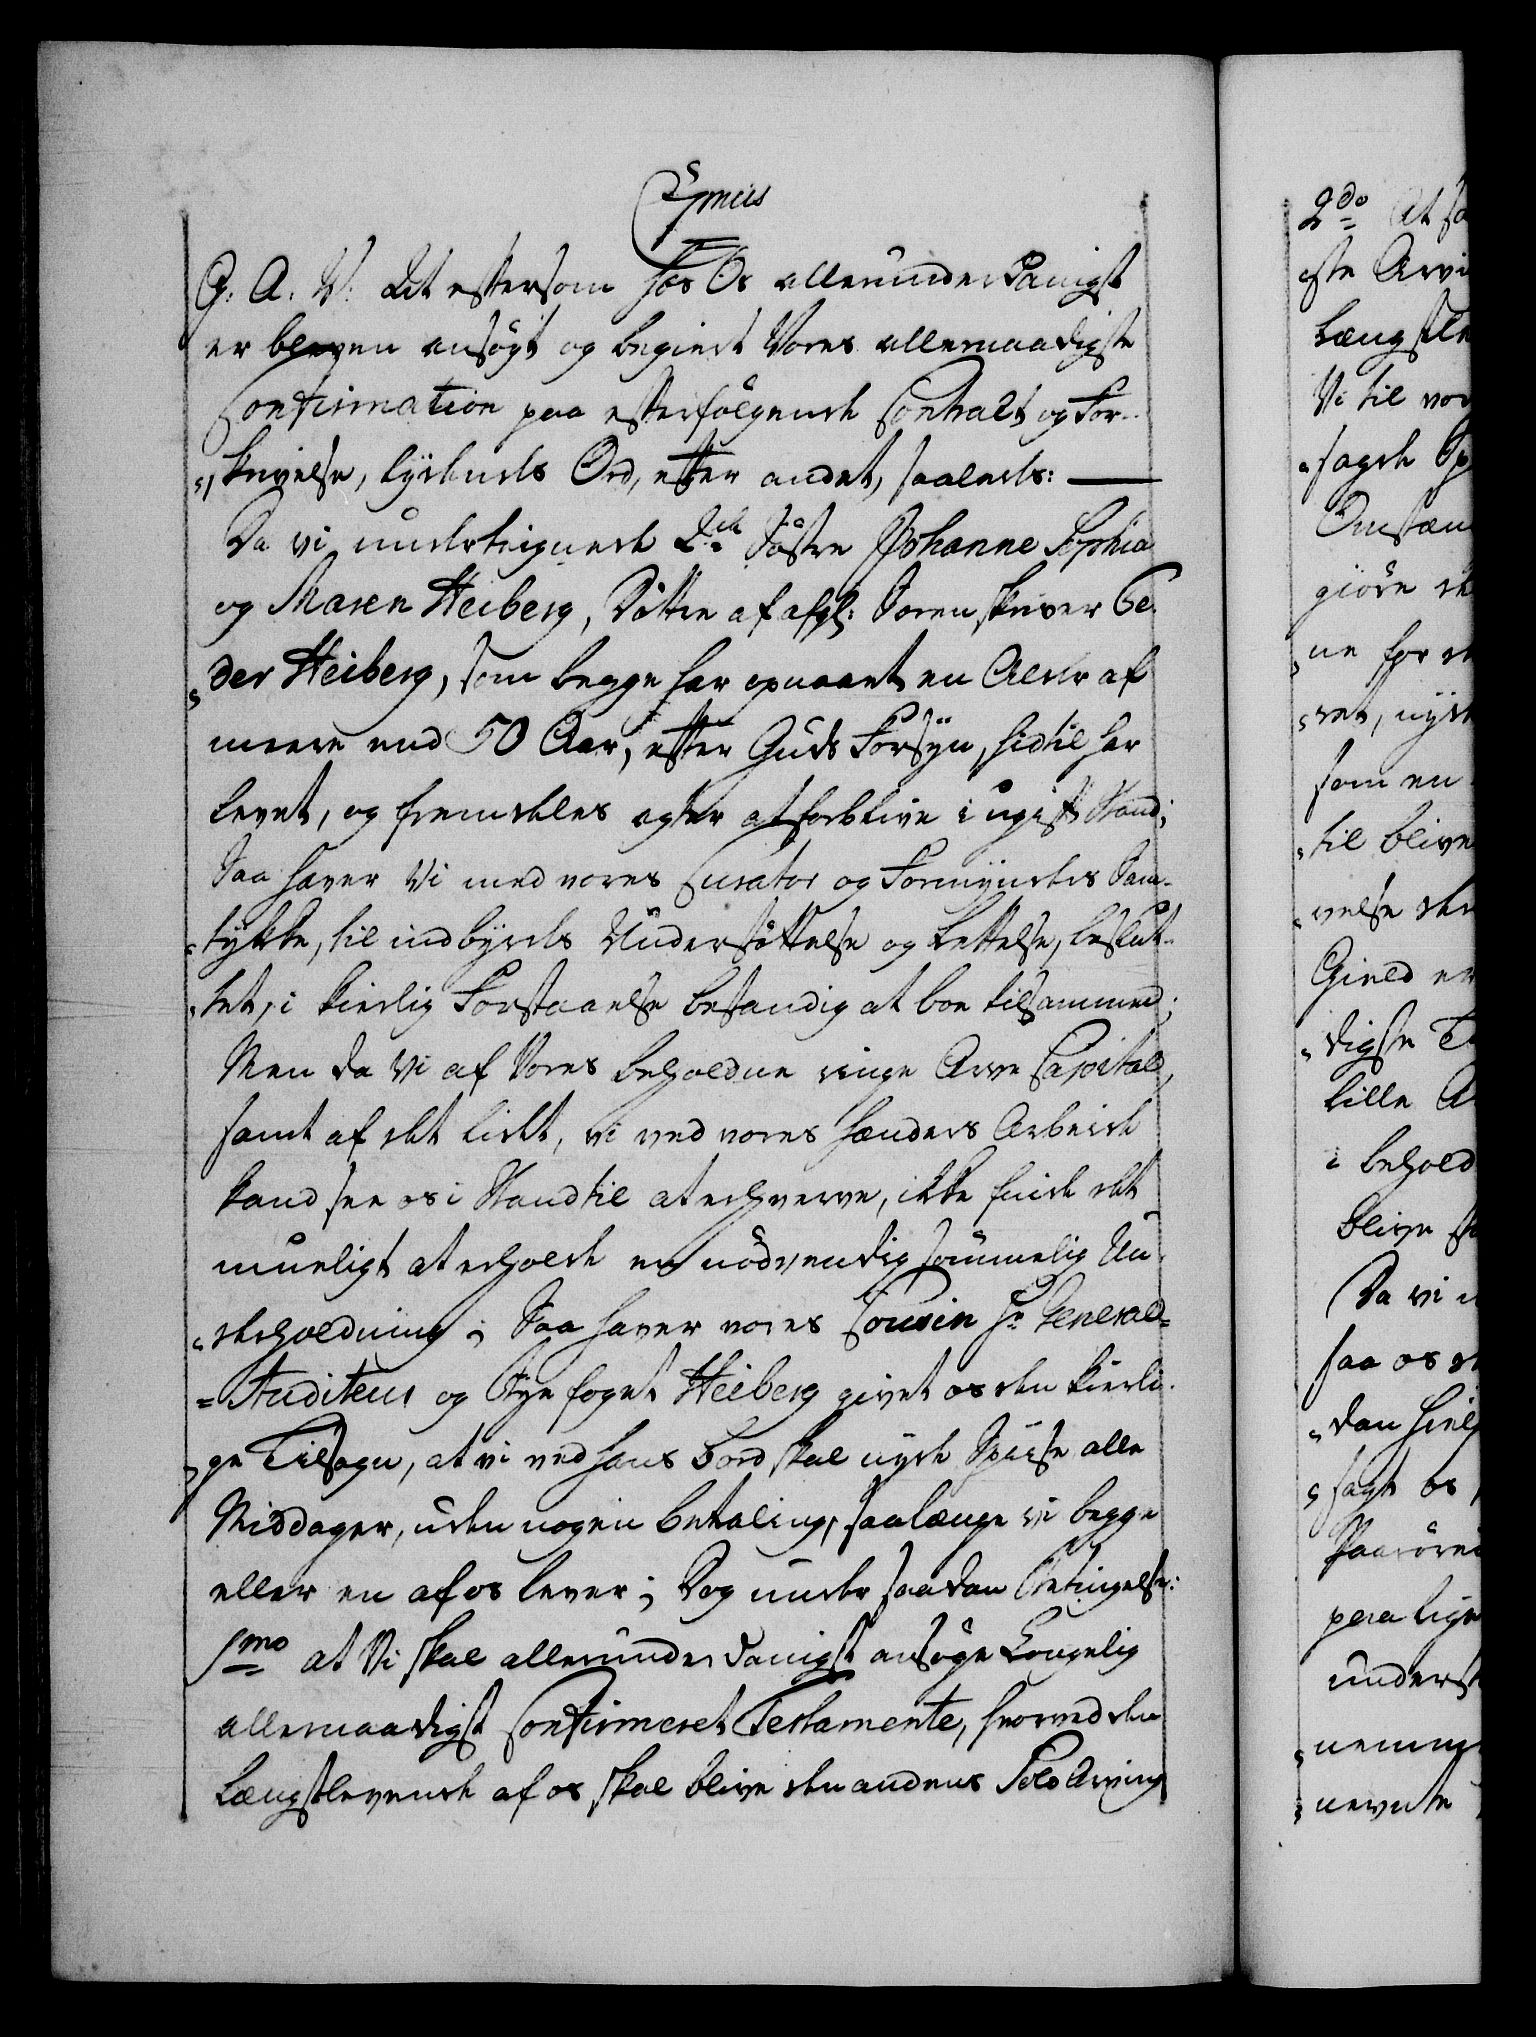 G: A: V: At eftersom hos Os allerunderdanigst
er bleven ansögt og begiert Vores allernaadigste
Confirmation paa efterfölgende Contract og For-
skrivelse, lydendes Ord, efter andet, saaledes:
Da vi undertegnede 2de Söstre Johanne Sophia
og Maren Heiberg, Döttre af afgl: Sorenskriver Pe-
der Heiberg, som begge har opnaaet en Alder af
meere end 50 Aar, efter Guds Forsyn, hidtil har
levet, og fremdeles agter at forblive i ugift Stand;
Saa haver Vi med vores Curator og Formynders Sam-
tykke, til indbyrdes Understöttelse og Lettelse, beslut-
tet, i kierlig Forstaaelse bestandig at boe tilsammen;
Men da Vi af Vores beholdne ringe Arve Capital,
samt af det lidet, vi ved vores Hænders Arbeide
kand see os i Stand til at erhverve, ikke finde det
mueligt at erholde en nödvendig sömmelig Un-
derholdning; Saa haver vores Cousin Hr General-
Auditeur og Byefoget Heiberg givet os den kierli-
ge Tilsagn, at vi ved hans Bord skal nyde Spiise alle
Middager, uden nogen Betaling, saalænge vi begge
eller en af os lever; Dog under saadan Betingelse:
1mo at Vi skal allerunderdanigst ansöge Kongelig
allernaadigst Confirmeret Testamente, hvorved den
Længstlevende af os skal blive den andens Solo Arving
2do At
Længstle
Vi til vor
sagde
giöre
som en
til blive
velse
Gield
lille
i behold
blive
Da vi
saa os
sagt os
paa lige
underst
nevnte